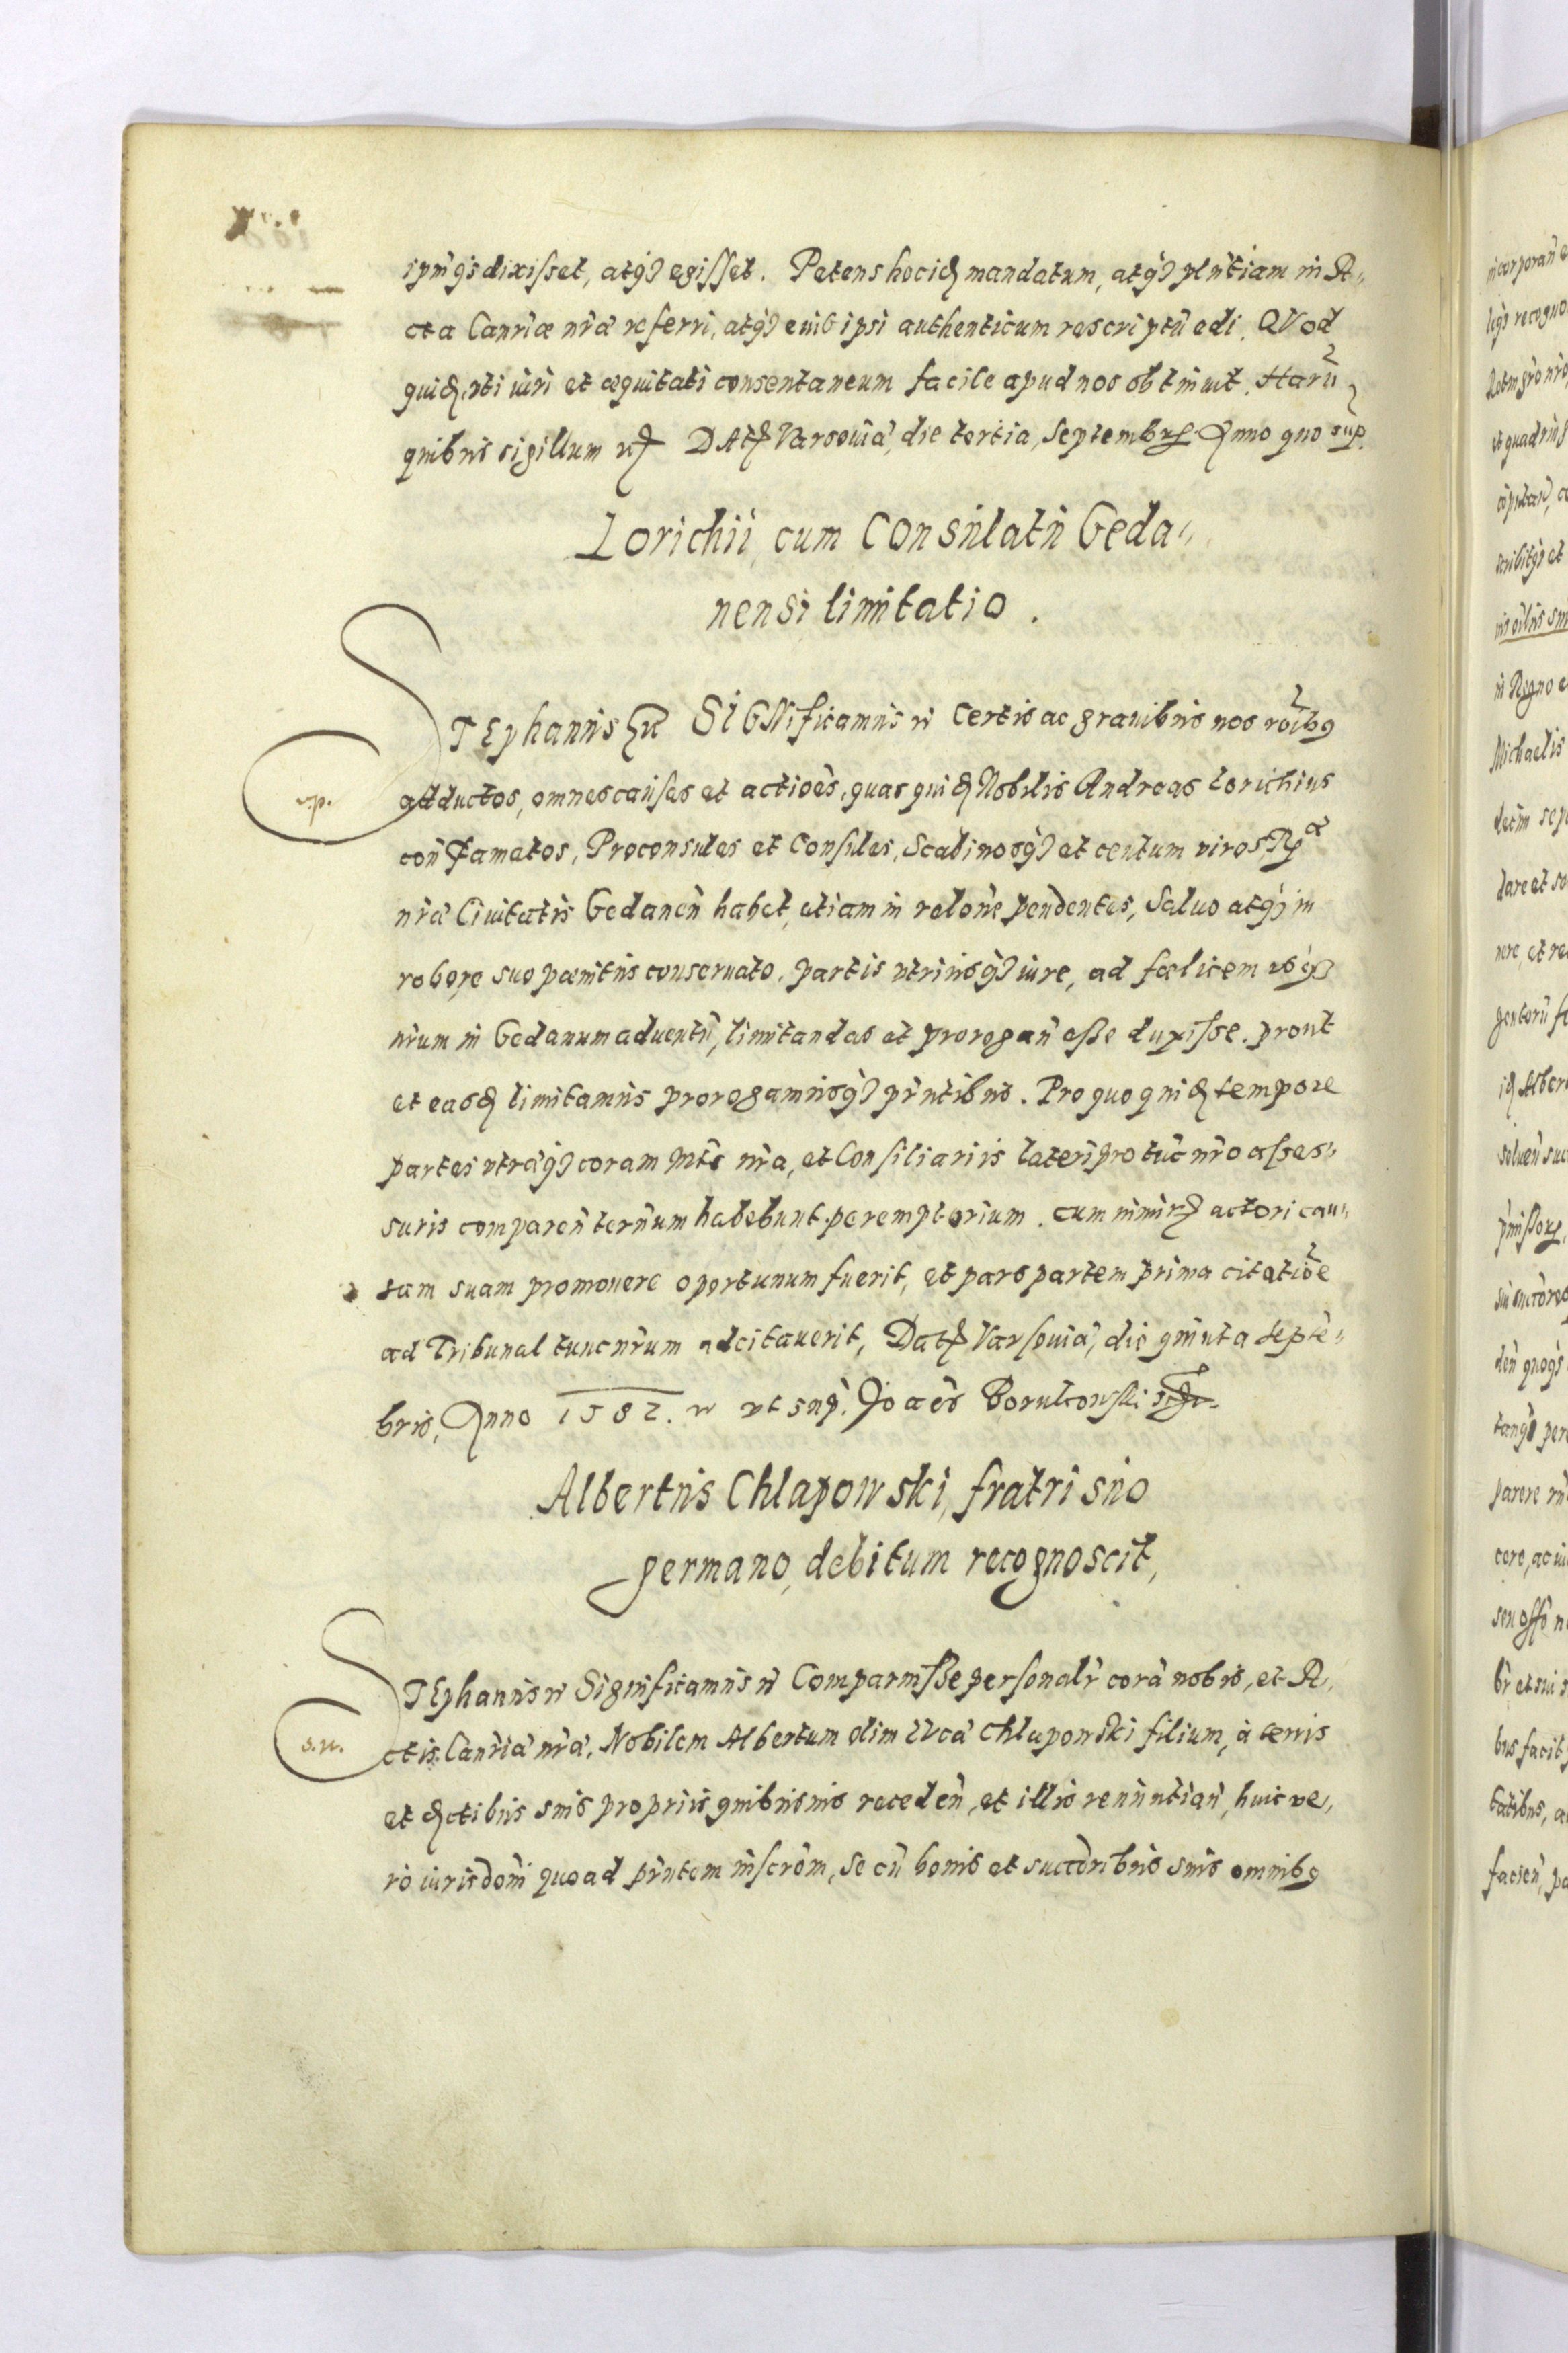 ipm̃ q̃s dixisset, atq; egisset. Petens hoc id. mandatum, atq; plñtiam in A„
cta Canrĩæ nrã referri, atq; eius ipsi authenticum rescriptũ edi. QVod
quid. uti iuri et æquitati consentaneum facile apud nos obtinuit. Harũ
quibus sigillum etc. DAt. Varsouiã, die tertia, Septembr. Anno quo sup.
Lorichii, cum Consulatu Geda„
nensi limitatio.
STEphanus etc. SIGNificamus etc. Certis ac grauibus nos rõibus
v.p.
adductos, omnes causas et actiões, quas quid. Nobilis Andreas Lorichius
con̄ Famatos, Proconsules et Consules, Scabinosq; et centum viros, Rpca
nrã Ciuitatis Gedanen̄ habet, etiam in relõne pendentes, Saluo atq; in
robore suo pœnitus conseruato, partis utriusq; iure, ad fœlicem usq;
nrum in Gedanum aduentũ, limitandas et prorogan̄ esse duxisse. prout
et easd. limitamus prorogamusq; prñtibus. Pro quo quid. tempore
partes utraq; coram Mte nrã, et Consiliariis lateri pro tũc nrõ asses„
suris comparen̄ terñum habebunt peremptorium. cum nimir. actori cau„
sam suam promouere oportunum fuerit, et pars partem prima citatiõe
ad Tribunal tunc nrum adcitauerit, Dat. Varsouiã, die quinta Septẽ„
bris, Anno 1582. etc. ut sup. Joães Borukowski
Albertus Chlapowski, fratri suo
germano, debitum recognoscit,
STEphanus etc. Significamus etc. Comparuisse personalr̃ corã nobis, et A„
s.n.
ctis Canriã nrã, Nobilem Albertum olim LVcã Chlapowski filium, à terris
et Actibus suis propriis quibusuis receden̄, et illis renuntian̄, huic ve„
rò iurisdõni quoad prñtem inscrõm, se cũ bonis et succõribus suis omnibus